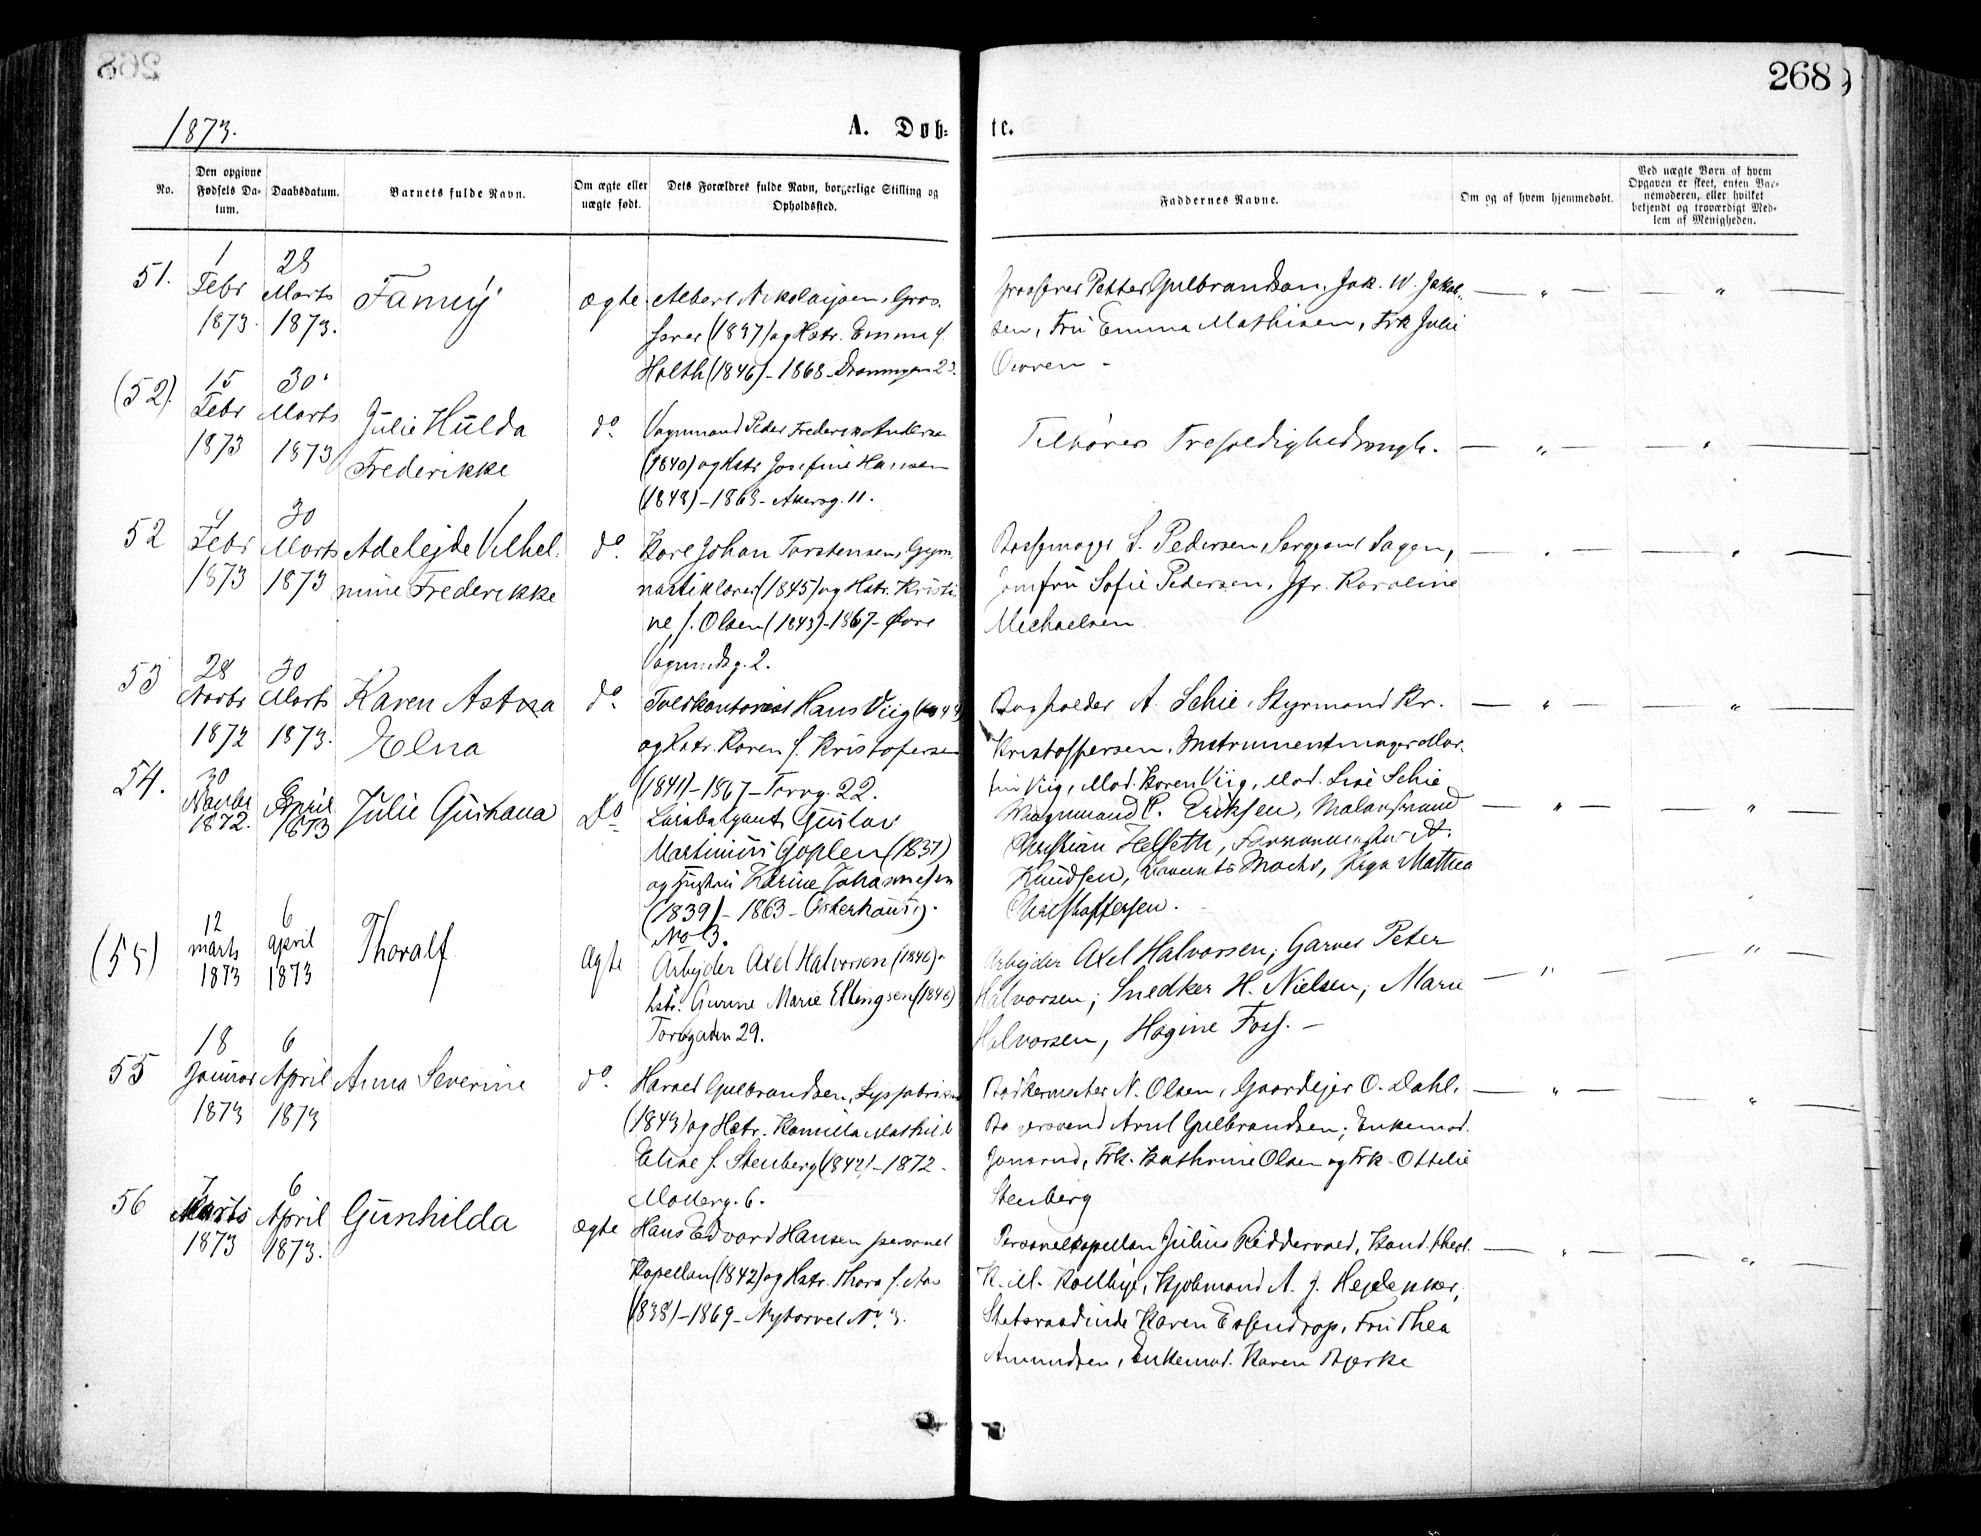 268
1873.
A. Døb-
te.
No.
Den opgivne Fødsels Da-tum.
Daabsdatum.
Barnets fulde Navn.
Om ægte eller uægte født.
Dets Forældres fulde Navn, borgerlige Stilling og Opholdssted.
Faddernes Navne.
Om og af hvem hjemmedøbt.
Ved uægte Børn af hvem Opgaven er skeet, enten Bar-nemoderen, eller hvilket bekjendt og troværdigt Med-lem af Menigheden.
51.
1 Febr 1873.
28 Marts 1873.
Fanny
ægte
Albert Nikolaisen, Gros.
serer (1837) og Hstr. Emma f.
Holth (1846) - 1868 - Dronningen 23.
Grosserer Petter Gulbrandsen, Jak. W. Jakob-
sen, Fru Emma Mathisen, Frk Julie
(52).
15 Febr 1873
30 Marts 1873
Julie Hulda
Frederikke
do.
Vognmand Peder Frederik Andersen
(1840) og Hstr Josefine Hansen
(1848) - 1868 - Akersg. 11.
Tilhører Trefoldighedsmgh.
52
4 Febr 1873
30 Marts 1873
Adelejde Vilhel-
mine Frederikke
do.
Karl Johan Torstensen, Gym.
nastiklærer (1845) og Hstr. Kristi-
ne f. Olsen (1843) - 1867 - Øvre
Vognmdsg. 2.
Bøssemager S. Pedersen, Sergeant Sagen,
Jomfru Sofie Pedersen, Jfr. Karoline
Michaelsen
53
28 Novbr 1872
30 Marts 1873.
Karen Astna
Elna
do.
Toldkontorist Hans Viig (1844)
og Hstr. Karen f. Kristofersen
(1841) - 1867 - Torvg. 22.
Bogholder A. Schie, Styrmand Kr.
Kristoffersen, Instrumentmager Mar-
tin Viig, Mad. Karen Viig, Mad. Lise Schie
54.
30 Novbr 1872.
April 1873
Julie Gushava
Do
Gustav
Martinius Goplen (1837)
og Hustru Karine Johannesen
(1839) - 1863 - Osterhausg.
No 3.
Vognmand P. Eriksen,
Christian Helseth,
Knudsen, Pige Mathea
Christoffersen.
(55)
12 marts 1873
6 april 1873
Thoralf
Ægte
Arbejder Axel Halvorsen (1846)
hstr. Gurine Marie Ellingsen (1846)
Torvgaden 29.
Arbejder Axel Halvorsen; Garver Peter
Halvorsen; Snedker H. Nielsen; Marie
Halvorsen, Hagine Foss. -
55
18 Januar 1873
6 April 1873
Anna Severine
do.
Harald Gulbrandsen,
(1843) og Hstr. Kamilla Mathilde
Elise f. Stenberg (1842) - 1872 -
Møllerg. 6.
Bødkermester N. Olsen, Gaardejer O. Dahl,
Bagersvend Arnt Gulbrandsen, Enkemad.
Jonsrud, Frk. Kathrine Olsen og Frk. Ottilie
Stenberg
56
7 Marts 1873
6 April 1873.
Gunhilda
ægte
Hans Edvard Hansen personel
Kapellan (1842) og Hstr. Thora f. Aas
(1838) - 1869 - Nytorvet No. 3.
Personelkapellan Julius Riddervold, Kand. theol.
K. M. Kolbye, Kjøbmand A. J.
Statsraadinde Karen Essendrop, Fru Thea
Amundsen, Enkemad. Karen Bjerke